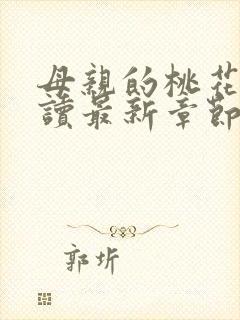 母親的桃花
讀最新章節
郭圻